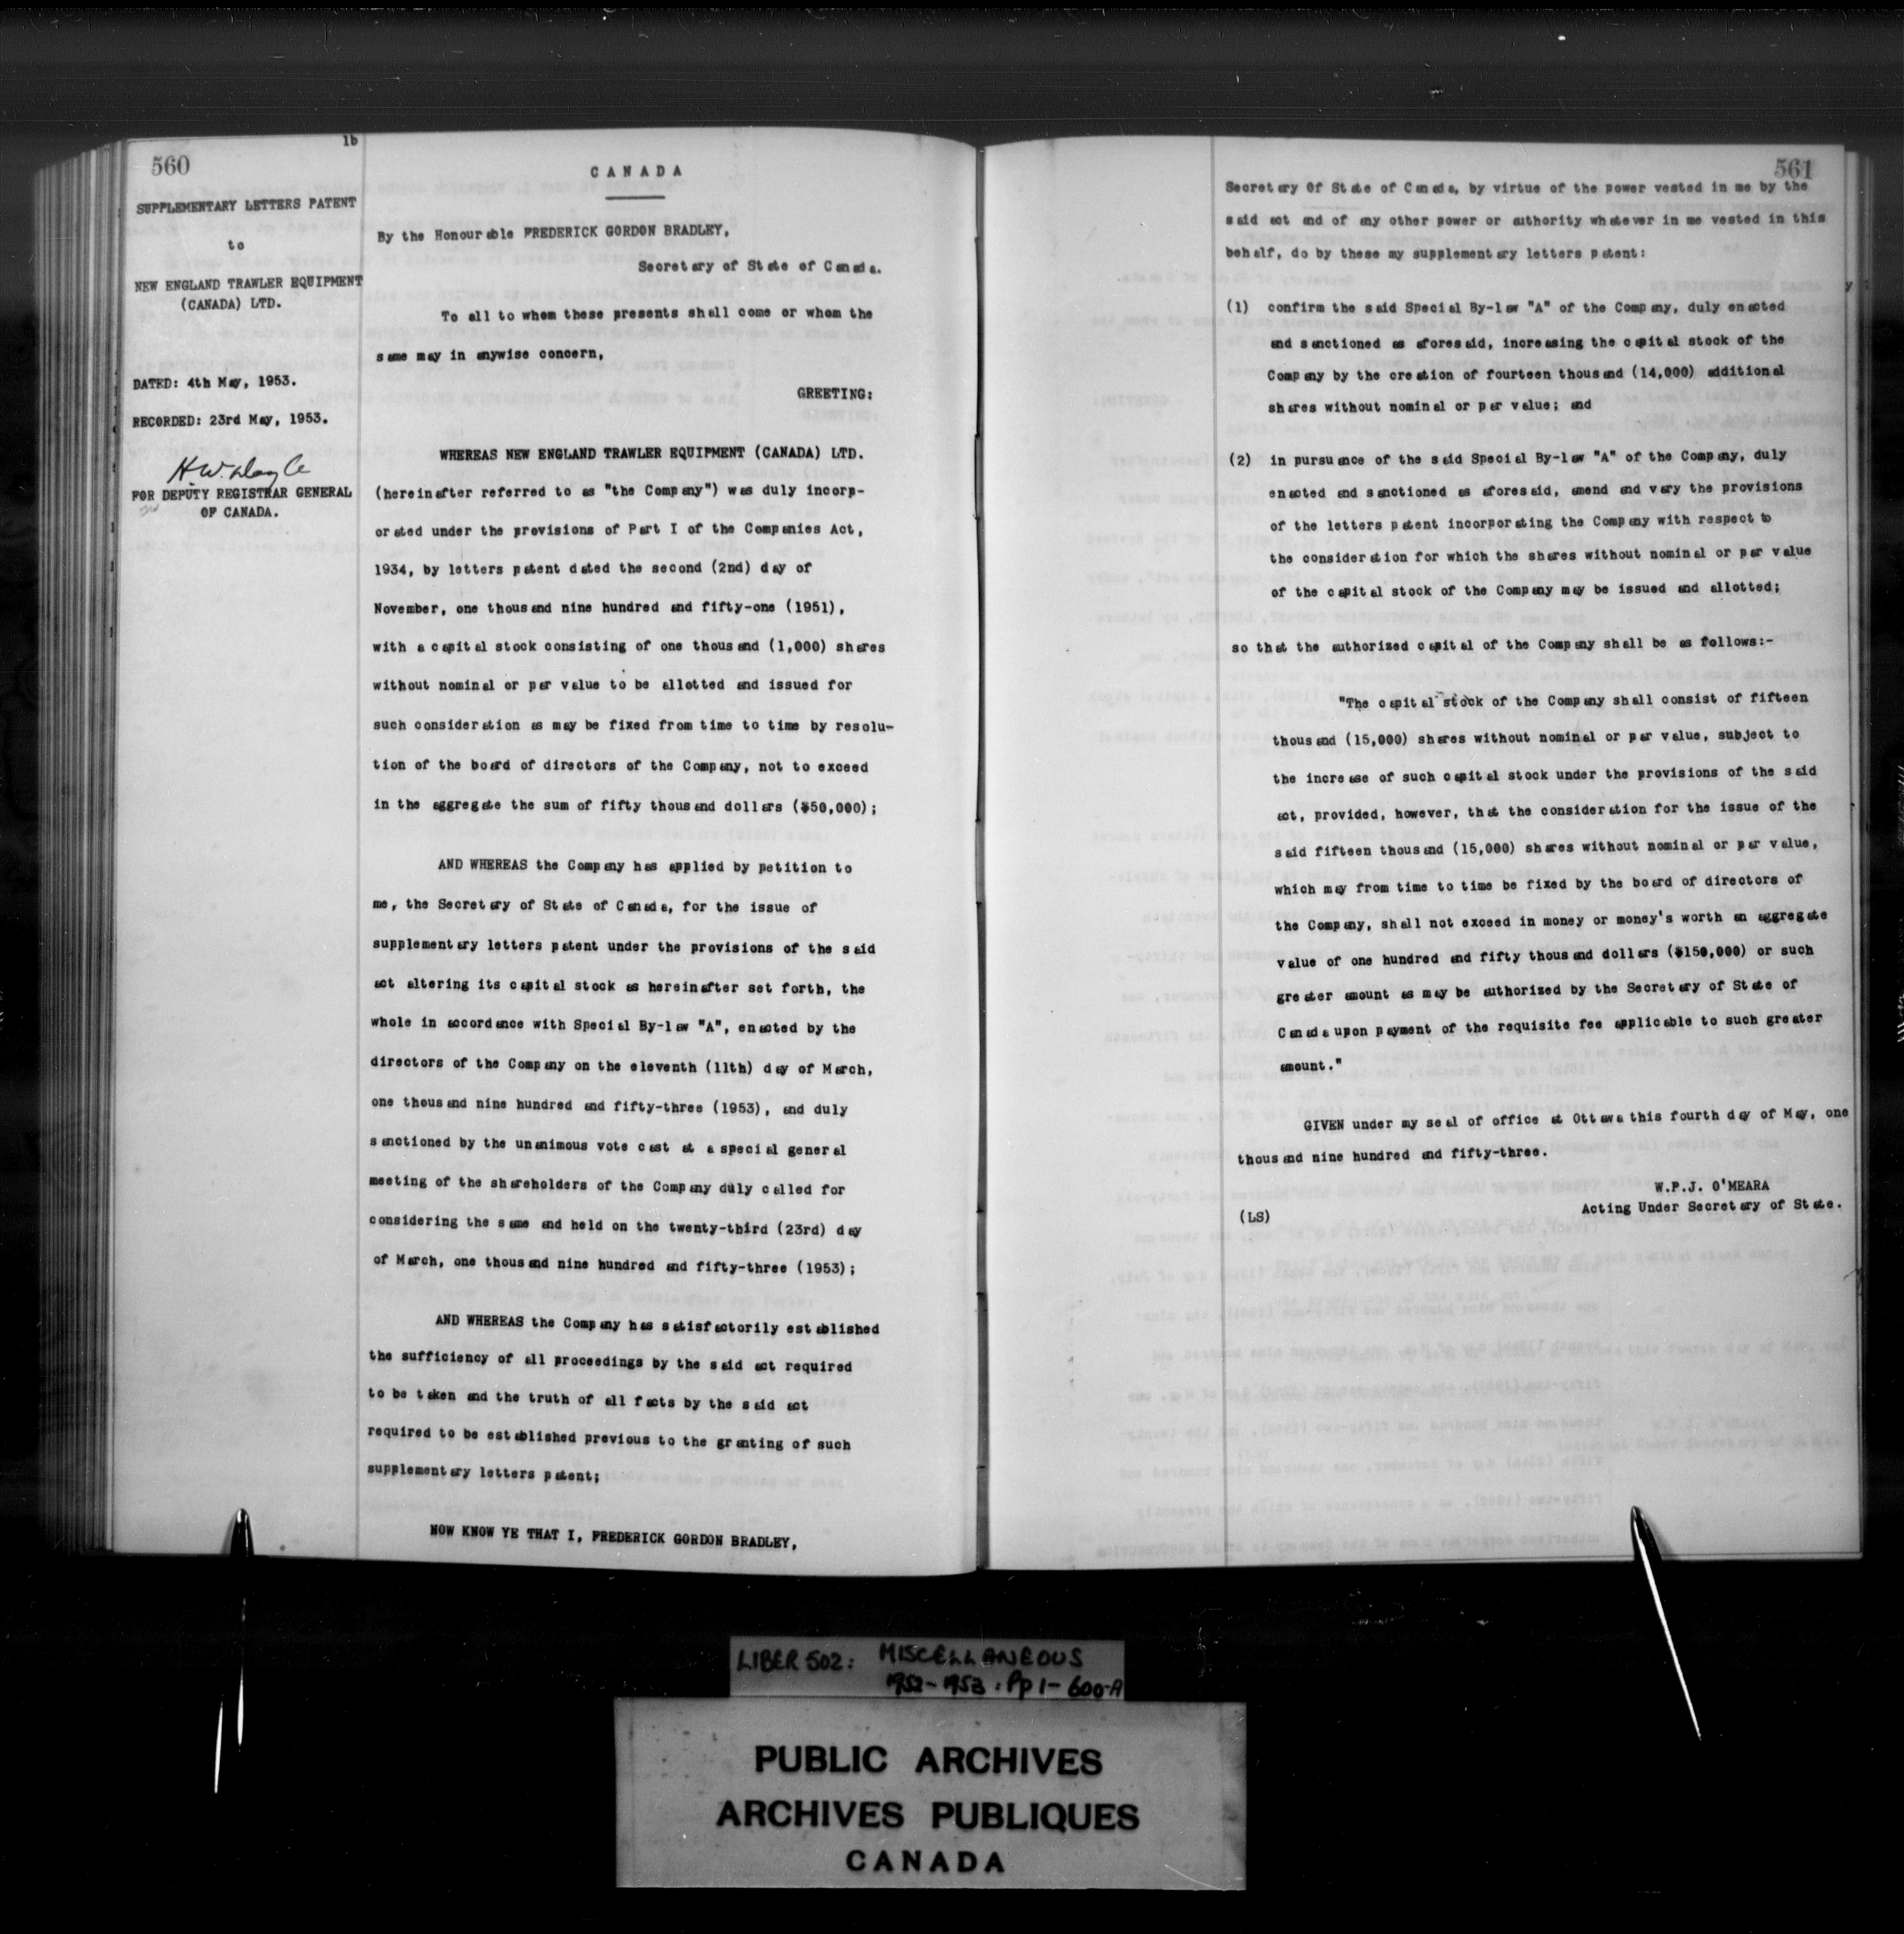 560
1b
SUPPLEMENTARY LETTERS PATENT
to
NEW ENGLAND TRAWLER EQUIPMENT
(CANADA) LTD.
DATED: 4th May, 1953.
RECORDED: 23rd May, 1953.
FOR DEPUTY REGISTRAR GENERAL
OF CANADA.
CANADA
By the Honourable FREDERICK GORDON BRADLEY,
Secretary of State of Canada.
To all to whom these presents shall come or whom the
same may in anywise concern,
GREETING:
WHEREAS NEW ENGLAND TRAWLER EQUIPMENT (CANADA) LTD.
(hereinafter referred to as "the Company") was duly incorp-
orated under the provisions of Part I of the Companies Act,
1934, by letters patent dated the second (2nd) day of
November, one thousand nine hundred and fifty-one (1951),
with a capital stock consisting of one thousand (1,000) shares
without nominal or par value to be allotted and issued for
such consideration as may be fixed from time to time by resolu-
tion of the board of directors of the Company, not to exceed
in the aggregate the sum of fifty thousand dollars ($50,000);
AND WHEREAS the Company has applied by petition to
me, the Secretary of State of Canada, for the issue of
supplementary letters patent under the provisions of the said
act altering its capital stock as hereinafter set forth, the
whole in accordance with Special By-law "A", enacted by the
directors of the Company on the eleventh (11th) day of March,
one thousand nine hundred and fifty-three (1953), and duly
sanctioned by the unanimous vote cast at a special general
meeting of the shareholders of the Company duly called for
considering the same and held on the twenty-third (23rd) day
of March, one thousand nine hundred and fifty-three (1953);
AND WHEREAS the Company has satisfactorily established
the sufficiency of all proceedings by the said act required
to be taken and the truth of all facts by the said act
required to be established previous to the granting of such
supplementary letters patent;
NOW KNOW YE THAT I, FREDERICK GORDON BRADLEY,
561
Secretary Of State of Canada, by virtue of the power vested in me by the
said act and of any other power or authority whatever in me vested in this
behalf, do by these my supplementary letters patent:
(1) confirm the said Special By-law "A" of the Company, duly enacted
and sanctioned as aforesaid, increasing the capital stock of the
Company by the creation of fourteen thousand (14,000) additional
shares without nominal or par value; and
(2) in pursuance of the said Special By-law "A" of the Company, duly
enacted and sanctioned as aforesaid, amend and vary the provisions
of the letters patent incorporating the Company with respect to
the consideration for which the shares without nominal or par value
of the capital stock of the Company may be issued and allotted;
so that the authorized capital of the Company shall be as follows:-
"The capital stock of the Company shall consist of fifteen
thousand (15,000) shares without nominal or par value, subject to
the increase of such capital stock under the provisions of the said
act, provided, however, that the consideration for the issue of the
said fifteen thousand (15,000) shares without nominal or par value,
which may from time to time be fixed by the board of directors of
the Company, shall not exceed in money or money's worth an aggregate
value of one hundred and fifty thousand dollars ($150,000) or such
greater amount as may be authorized by the Secretary of State of
Canada upon payment of the requisite fee applicable to such greater
amount."
GIVEN under my seal of office at Ottawa this fourth day of May, one
thousand nine hundred and fifty-three.
W.P.J. O'MEARA
(LS) Acting Under Secretary of State.
LIBER 502: MISCELLANEOUS
1952-1953: Pp 1-600-A
PUBLIC ARCHIVES
ARCHIVES PUBLIQUES
CANADA